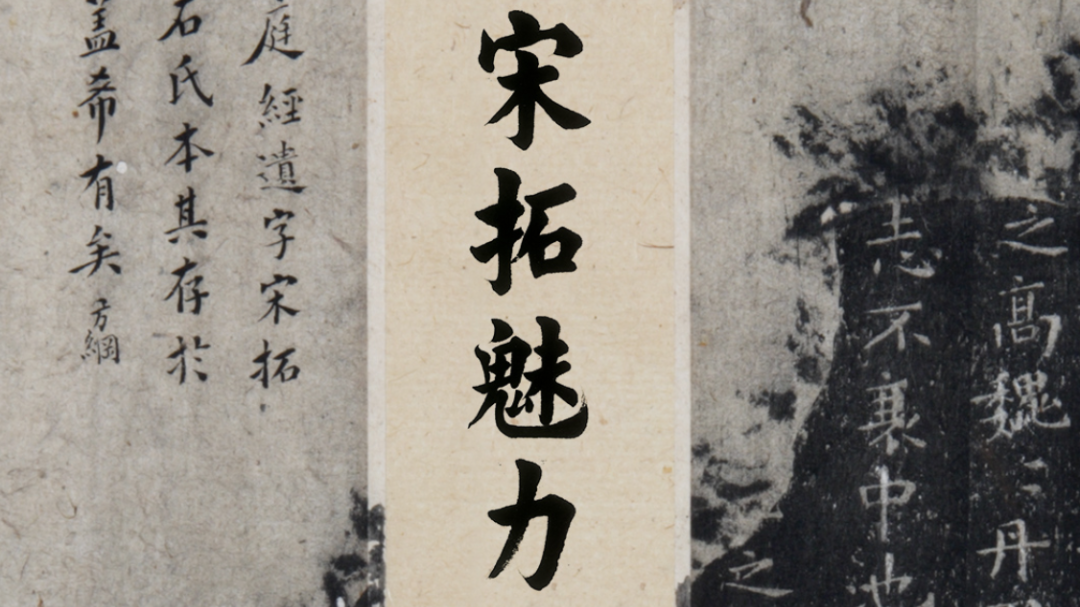 之高魏〻丹
志不衰中池
之
宋拓魅力
庭經遺字宋拓
石氏本其存於
蓋希有矣方綱